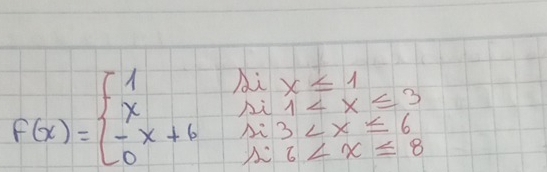 1 si x ≤ 1
x si 1 < x ≤ 3
f(x) = { -x + 6 si 3 < x ≤ 6
0 si 6 < x ≤ 8